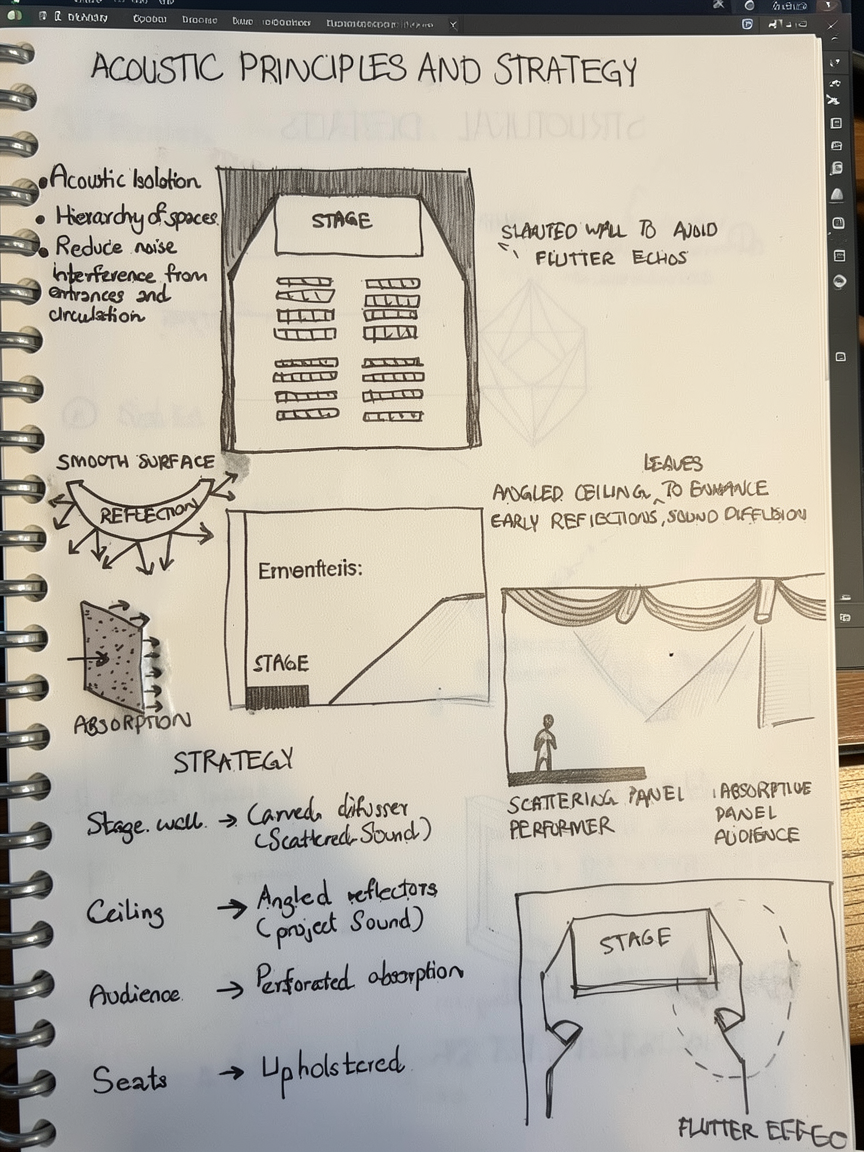 ACOUSTIC PRINCIPLES AND STRATEGY
• Acoustic Isolation
• Hierarchy of spaces
• Reduce noise
interference from
entrances and
circulation
STAGE
SLANTED WALL TO AVOID
FLUTTER ECHOS
SMOOTH SURFACE
REFLECTION
ABSORPTION
Emenfteris:
STAGE
LEAVES
ANGLED CEILING, TO ENHANCE
EARLY REFLECTIONS, SOUND DIFFUSION
SCATTERING PANEL
PERFORMER
ABSORPTIVE
PANEL
AUDIENCE
STRATEGY
Stage wall → Carved difusser
(Scattered Sound)
Ceiling → Angled reflectors
(project Sound)
Audience → Perforated absorption
Seats → Upholstered
STAGE
FLUTTER EFFEC